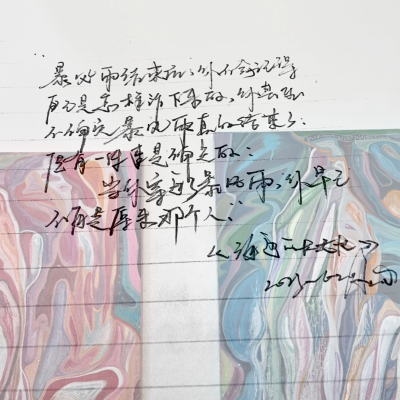 暴风雨结束后，你不会记得
自己是怎样活下来的，你甚至
不确定暴风雨真的结束了。
但有一件事是确定的：
当你穿过了暴风雨，你早已
不再是原来那个人。
《海边的卡夫卡》